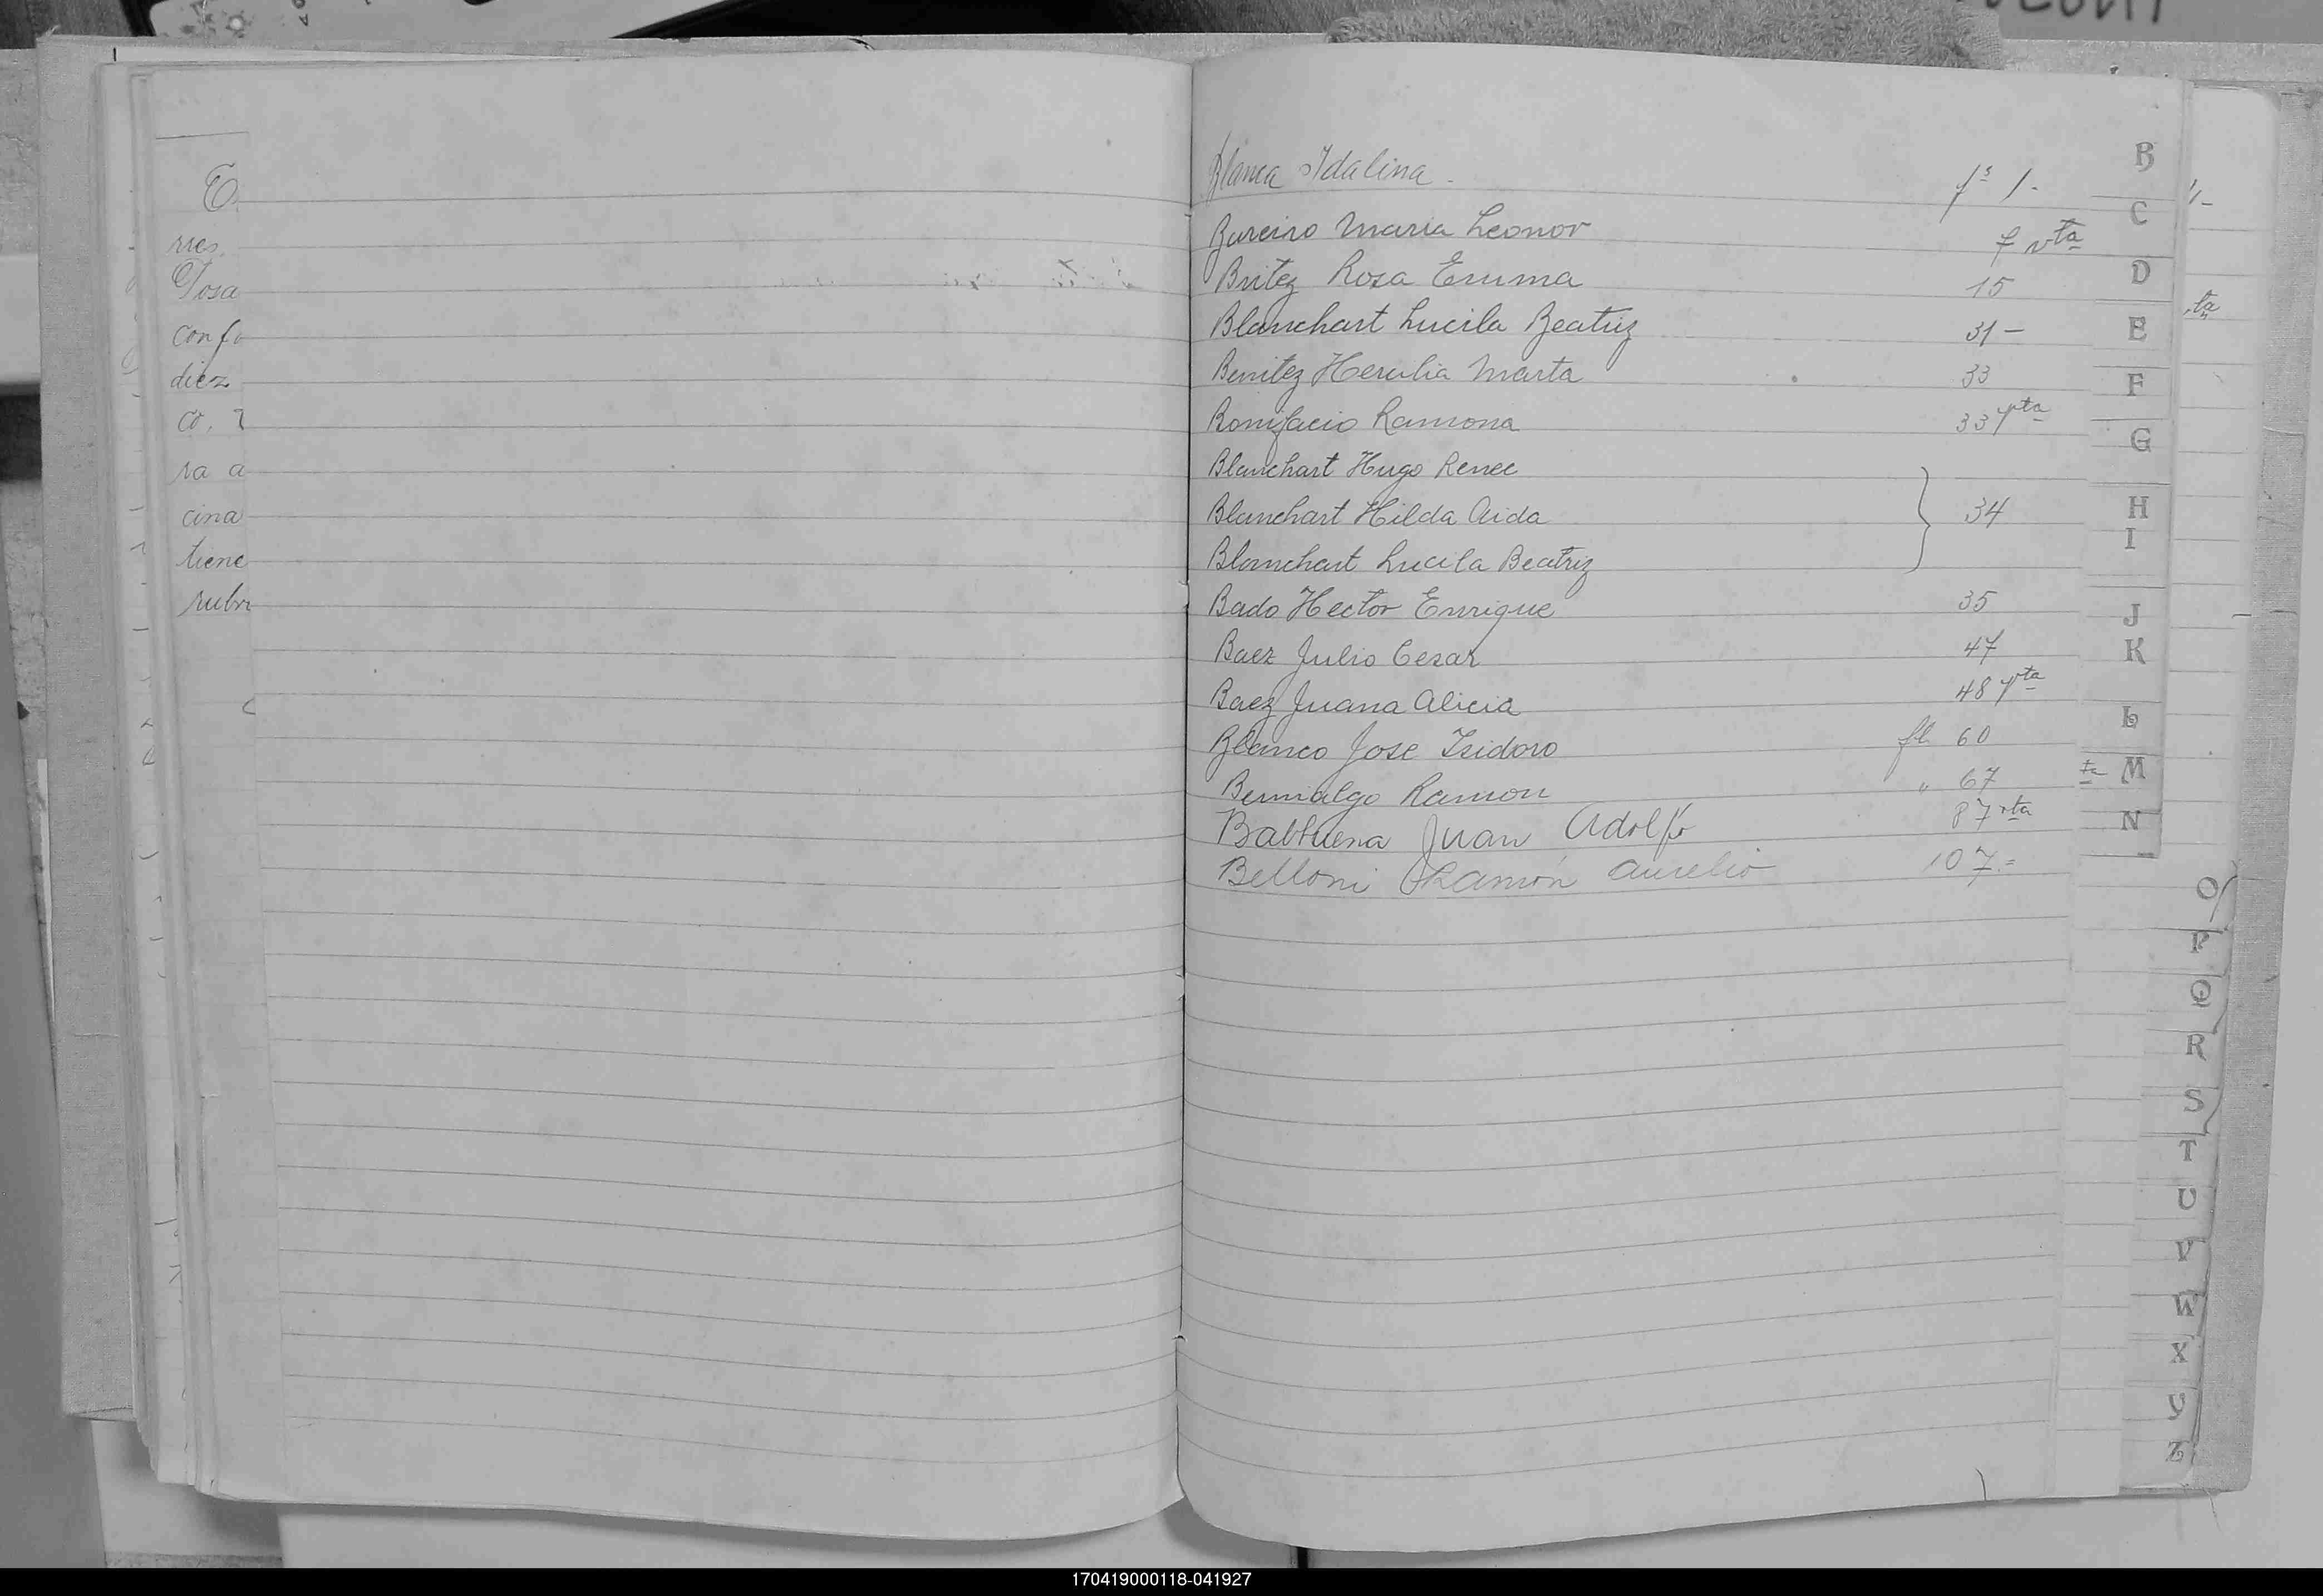 rres.
Tosa
confo
diez
co.
ra a
cina
tiene
rubri
Blanca Idalina. fs 1.-
Bareiro Maria Leonor f vta
Britez Rosa Emma 15
Blanchart Lucila Beatriz 31 -
Benitez Hersilia Marta 33
Bonifacio Ramona 33 vta
Blanchart Hugo Renee
Blanchart Hilda Aida 34
Blanchart Lucila Beatriz
Bado Hector Enrique 35
Baez Julio Cesar 47
Baez Juana Alicia 48 vta
Blanco Jose Isidoro fl 60
Bernialgo Ramon " 67
Balbuena Juan Adolfo 87 vta
Belloni Ramón Aurelio 107.=
B
C
D
E
F
G
H
I
J
K
L
M
N
O
P
Q
R
S
T
U
V
W
X
Y
Z
170419000118-041927